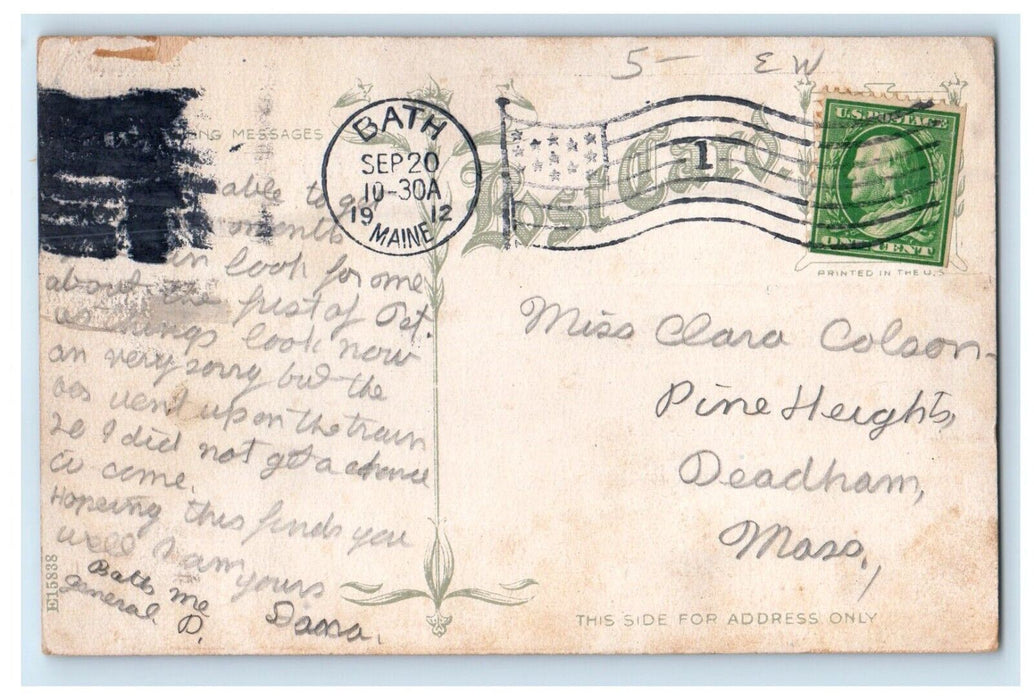 5- EW
NG MESSAGES
Post Card.
BATH
SEP 20
10-30A
19 12
MAINE
1
U.S. POSTAGE
ONE CENT
PRINTED IN THE U.S
able to go
months
look for me
about the first of Oct.
as things look now
very sorry but the
went up on the train
so I did not get a chance
to come.
Hopeing this finds you
well I am yours
Dana.
Bath Me
general D.
E15838
Miss Clara Colson
Pine Heights,
Deadham,
Mass,
THIS SIDE FOR ADDRESS ONLY